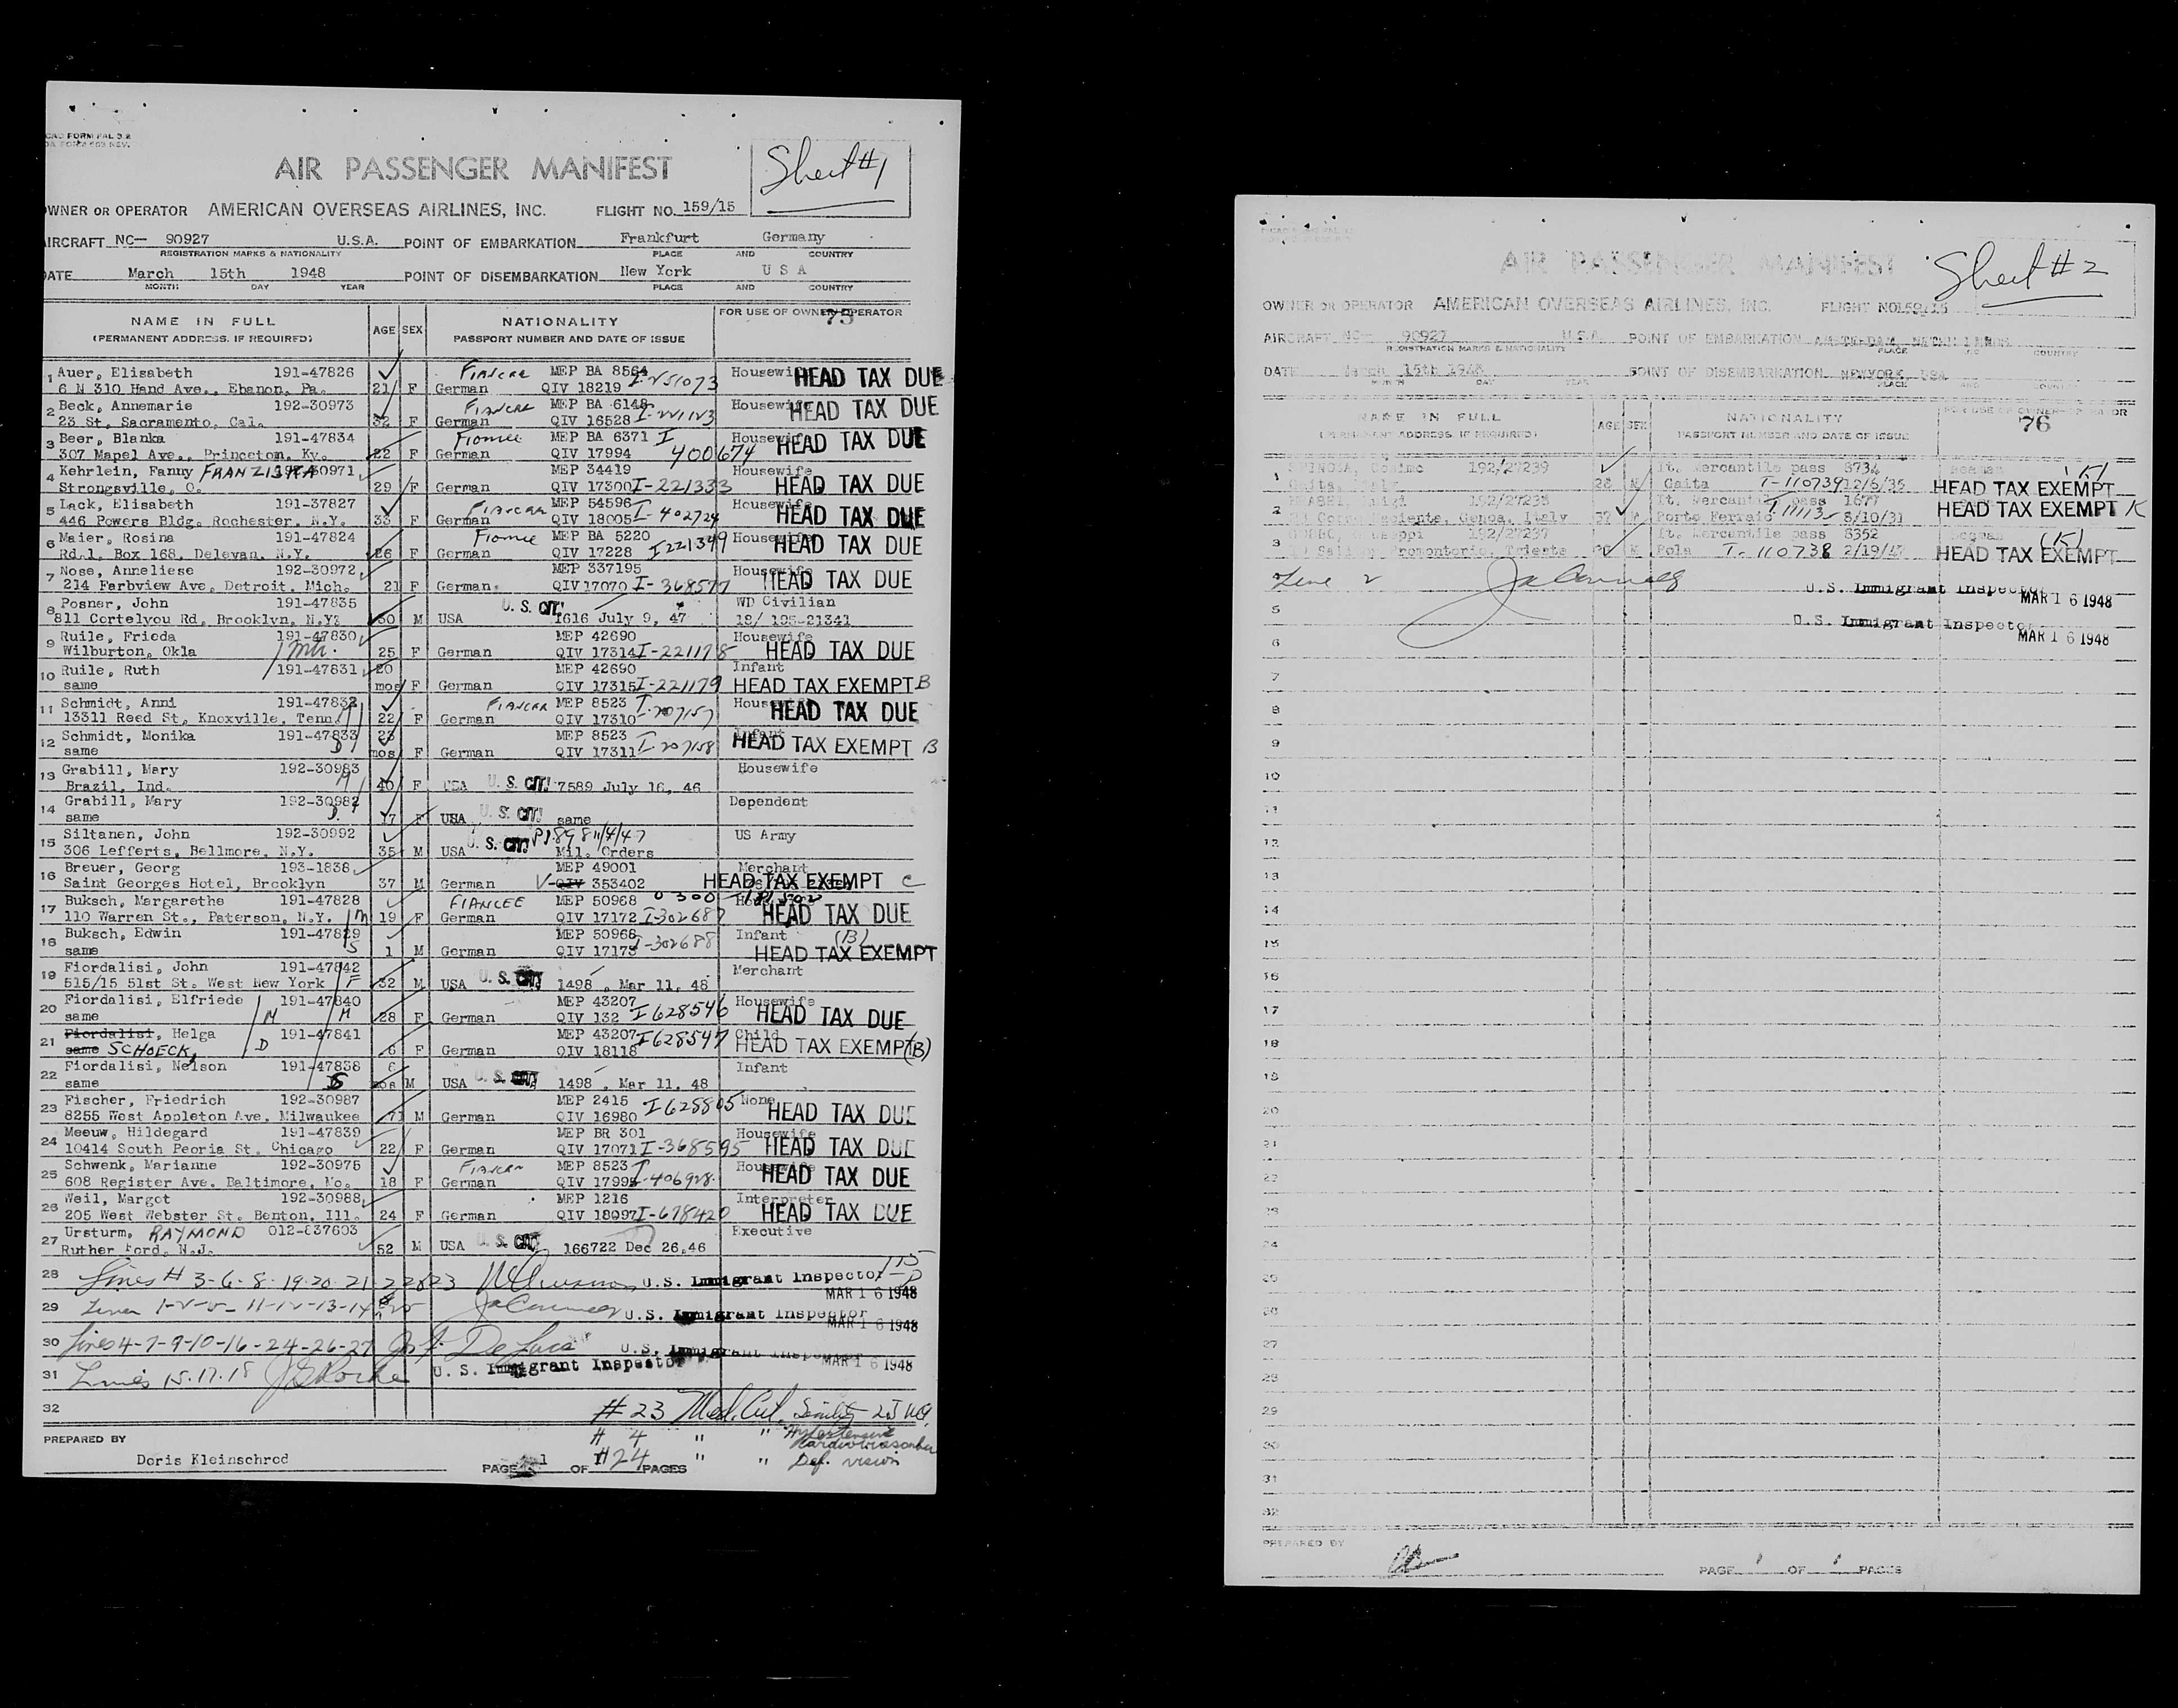 AIR PASSENGER MANIFEST
Sheet #1
OWNER OR OPERATOR AMERICAN OVERSEAS AIRLINES, INC. FLIGHT NO. 159/15
AIRCRAFT NC— 90927 U.S.A. POINT OF EMBARKATION Frankfurt Germany
REGISTRATION MARKS & NATIONALITY PLACE AND COUNTRY
DATE March 15th 1948 POINT OF DISEMBARKATION New York U S A
MONTH DAY YEAR PLACE AND COUNTRY
NAME IN FULL AGE SEX NATIONALITY FOR USE OF OWNER OPERATOR
(PERMANENT ADDRESS, IF REQUIRED) PASSPORT NUMBER AND DATE OF ISSUE 75
1 Auer, Elisabeth 191-47826 FIANCEE MEP BA 8564 Housewife HEAD TAX DUE
6 N 310 Hand Ave., Ebanon, Pa. 21 F German QIV 18219
2 Beck, Annemarie 192-30973 FIANCEE MEP BA 6148 Housewife HEAD TAX DUE
23 St, Sacramento, Cal. 32 F German QIV 16528
3 Beer, Blanka 191-47834 Fiancee MEP BA 6371 I Housewife HEAD TAX DUE
307 Mapel Ave., Princeton, Ky. 22 F German QIV 17994 400674
4 Kehrlein, Fanny FRANZISKA MEP 34419 Housewife
Strongsville, O. 29 F German QIV 17300 I-221333 HEAD TAX DUE
5 Lack, Elisabeth 191-37827 FIANCEE MEP 54596 Housewife
446 Powers Bldg. Rochester, N.Y. 33 F German QIV 18005 I-402724 HEAD TAX DUE
6 Maier, Rosina 191-47824 Fiancee MEP BA 5220 Housewife
Rd.1, Box 168, Delevan, N.Y. 26 F German QIV 17228 I221349 HEAD TAX DUE
7 Nose, Anneliese 192-30972 MEP 337195 Housewife
214 Ferbview Ave, Detroit, Mich. 21 F German. QIV 17070 I-368577 HEAD TAX DUE
8 Posner, John 191-47835 U. S. CIT. WD Civilian
811 Cortelyou Rd, Brooklyn, N.Y. 30 M USA 1616 July 9, 47
9 Ruile, Frieda 191-47830 MEP 42690 Housewife
Wilburton, Okla 25 F German QIV 17314 I-221178 HEAD TAX DUE
10 Ruile, Ruth 191-47831 20 MEP 42690 Infant
same mos F German QIV 17315 I-221179 HEAD TAX EXEMPT B
11 Schmidt, Anni 191-47832 FIANCEE MEP 8523 Housewife
13311 Reed St, Knoxville, Tenn. 22 F German QIV 17310 I-207157 HEAD TAX DUE
12 Schmidt, Monika 191-47833 23 MEP 8523 Infant
same D mos F German QIV 17311 I-207158 HEAD TAX EXEMPT B
13 Grabill, Mary 192-30983 Housewife
Brazil, Ind. M 40 F USA U. S. CIT. 7589 July 16, 46
14 Grabill, Mary 192-30982 Dependent
same D. 17 F USA U. S. CIT. same
15 Siltanen, John 192-30992 US Army
306 Lefferts, Bellmore, N.Y. 35 M USA U. S. CIT. Mil. Orders
16 Breuer, Georg 193-1838 MEP 49001 Merchant
Saint Georges Hotel, Brooklyn 37 M German V-QIV 353402 HEAD TAX EXEMPT C
17 Buksch, Margarethe 191-47828 FIANCEE MEP 50968 0300
110 Warren St., Paterson, N.Y. M 19 F German QIV 17172 I-302687 HEAD TAX DUE
18 Buksch, Edwin 191-47829 MEP 50968 Infant (B)
same S 1 M German QIV 17173 I-302688 HEAD TAX EXEMPT
19 Fiordalisi, John 191-47842 Merchant
515/15 51st St. West New York F 32 M USA U. S. CIT. 1498 , Mar 11, 48
20 Fiordalisi, Elfriede 191-47840 MEP 43207 Housewife
same M M 28 F German QIV 132 I628546 HEAD TAX DUE
21 Fiordalisi, Helga 191-47841 MEP 43207 I628547 Child
same SCHOECK, D 6 F German QIV 18118 HEAD TAX EXEMPT (B)
22 Fiordalisi, Nelson 191-47838 6 Infant
same S mos M USA U. S. CIT. 1498 , Mar 11, 48
23 Fischer, Friedrich 192-30987 MEP 2415 None
8255 West Appleton Ave, Milwaukee 71 M German QIV 16980 I628805 HEAD TAX DUE
24 Meeuw, Hildegard 191-47839 MEP BR 301 Housewife
10414 South Peoria St. Chicago 22 F German QIV 17071 I-368595 HEAD TAX DUE
25 Schwenk, Marianne 192-30975 FIANCEE MEP 8523 Housewife
608 Register Ave. Baltimore, Mo. 18 F German QIV 17995 I-406928 HEAD TAX DUE
26 Weil, Margot 192-30988 MEP 1216 Interpreter
205 West Webster St. Benton, Ill. 24 F German QIV 18097 I-678420 HEAD TAX DUE
27 Ursturm, RAYMOND 012-837603 Executive
Ruther Ford, N.J. 52 M USA U. S. CIT. 166722 Dec 26,46
28 Lines # 3-6-8-19-20-21-22&23 U.S. Immigrant Inspector
MAR 16 1948
29 U.S. Immigrant Inspector
MAR 16 1948
30 Lines 4-7-9-10-16-24-26-27 U.S. Immigrant Inspector
MAR 16 1948
31 Lines 15.17.18 U. S. Immigrant Inspector
32
#23 Med. Cert. Senility
PREPARED BY # 4 " " Hypertensive
Doris Kleinschrod #24 " " Def. vision
PAGE 1 OF 1 PAGES
AIR PASSENGER MANIFEST
Sheet #2
OWNER OR OPERATOR AMERICAN OVERSEAS AIRLINES, INC. FLIGHT NO 159/15
AIRCRAFT NC— 90927 U.S.A. POINT OF EMBARKATION AMSTERDAM, NETHERLANDS
REGISTRATION MARKS & NATIONALITY PLACE AND COUNTRY
DATE March 15th 1948 POINT OF DISEMBARKATION NEWYORK, USA
MONTH DAY YEAR PLACE AND COUNTRY
NAME IN FULL AGE SEX NATIONALITY FOR USE OF OWNER OPERATOR
(PERMANENT ADDRESS, IF REQUIRED) PASSPORT NUMBER AND DATE OF ISSUE 76
1 SPINOSA, Cosimo 192/27239 It. Mercantile pass 8734 Seaman (K)
Gaita, Italy 28 M Gaita T-110739 12/6/35 HEAD TAX EXEMPT
2 It. Mercantile pass 1677
Genoa, Italy 37 M Porto Ferraio 8/10/31 HEAD TAX EXEMPT K
3 192/27237 It. Mercantile pass 8352 Seaman (K)
Promontorio, Trieste M Pola T-110738 2/19/47 HEAD TAX EXEMPT
Line 2 U.S. Immigrant Inspector
MAR 16 1948
5 U.S. Immigrant Inspector
6 MAR 16 1948
7
8
9
10
11
12
13
14
15
16
17
18
19
20
21
22
23
24
25
26
27
28
29
30
31
32
PREPARED BY
PAGE 1 OF 1 PAGES